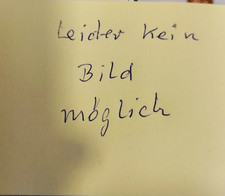 Leider kein
Bild
möglich